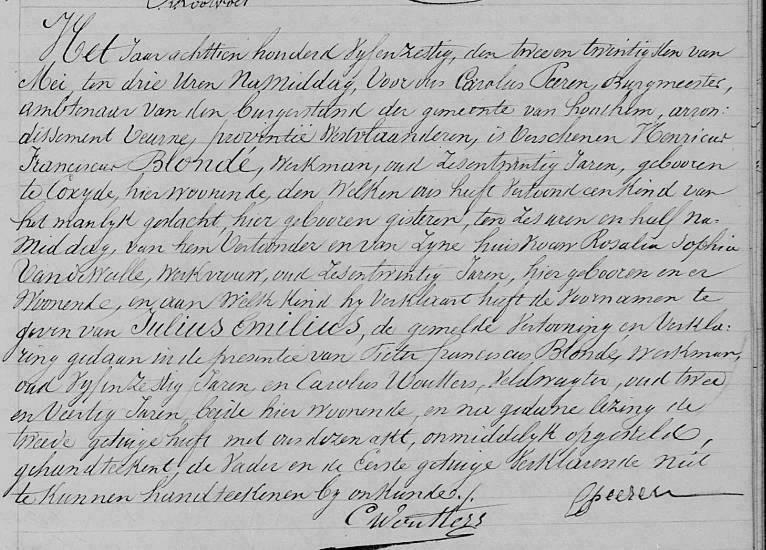 Het Jaar achttien honderd vyfenzestig, den twee en twintigsten van
Mei, ten drie Uren Namiddag, Voor ons Carolus Peeren, Burgmeester,
ambtenaar van den burgerstand der gemeente van Loothem, arron:
dissement Veurne, provintie Westvlaanderen, is Verschenen Henricus
Franciscus Blondé, Werkman, oud Zesentwintig Jaren, gebooren
te Coxyde, hier woonende, den Welken ons heeft Vertoond een Kind van
het manlyk geslacht, hier gebooren gisteren, ten Zes uren en half na-
Middag, van hem Vertoonder en van Zyne huisvrouw Rosalia Sophia
VandeWalle, Werkvrouw, oud Zesentwintig Jaren, hier gebooren en er
Woonende, en aan Welk Kind hy Verklaart heeft de Voornamen te
geven van Julius Emilius, de gemelde Vertooning en Verkla-
ring gedaan in de presentie van Pieter franciscus Blondé, Werkman,
oud Vyfenzestig Jaren, en Carolus Woutters, Veldwagter, oud twee
en Veertig Jaren, beide hier woonende, en na gedaene lezing de
tweede getuige heeft met ons dezen akt, onmiddelyk opgesteld,
gehandteekent, de Vader en de Eerste getuige Verklarende niet
te Kunnen handteekenen by onkunde./.
CPeeren
CWoutters